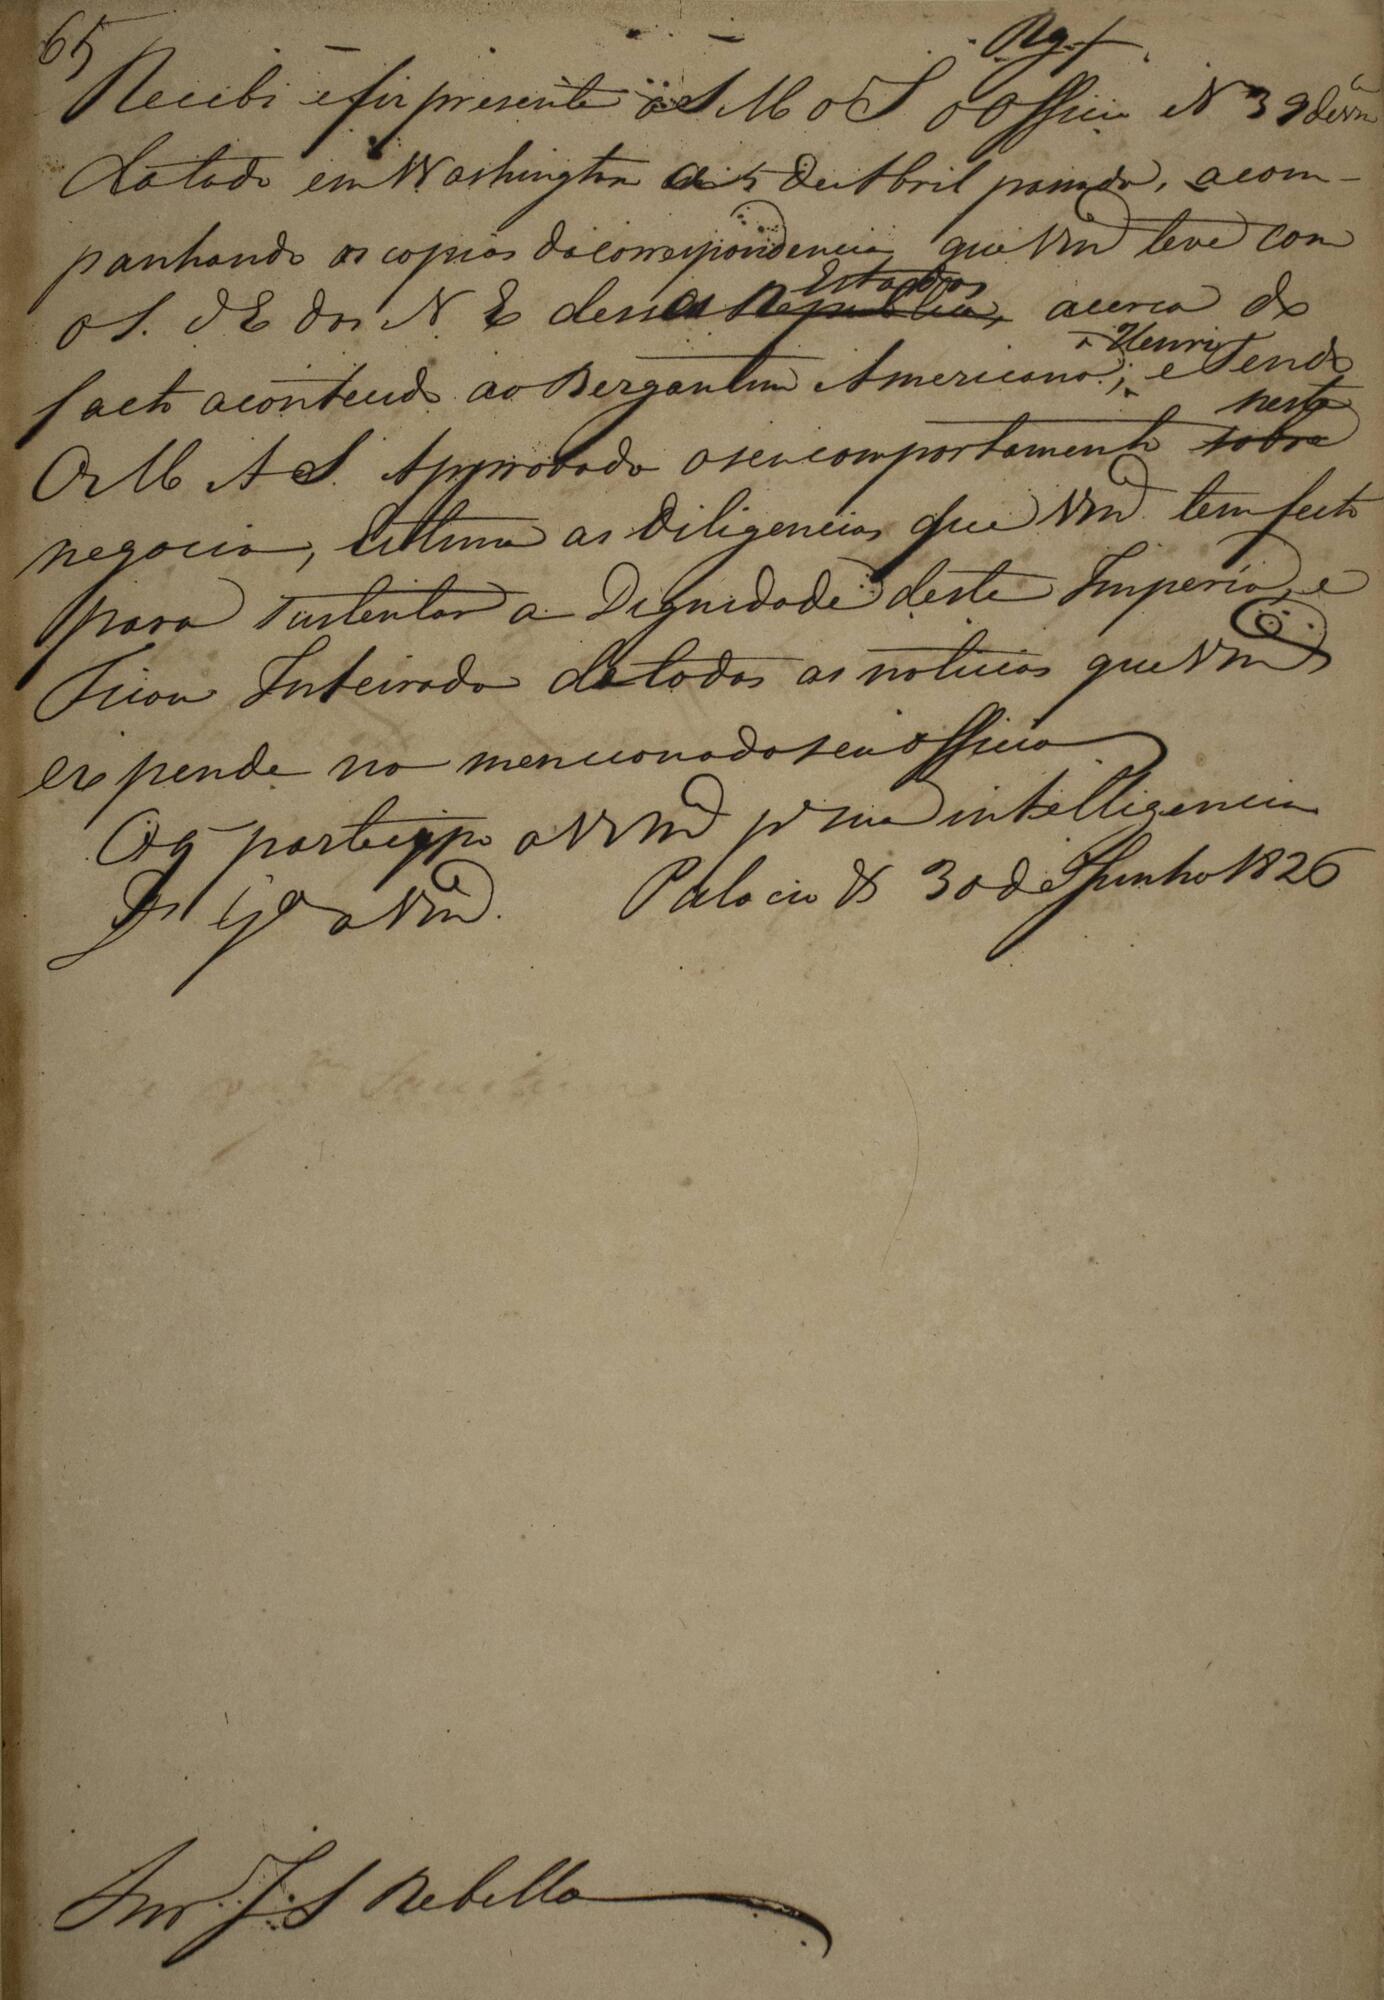 65
Rg.
Recebi e fiz presente a S M o S o Officio N 39 de Vmce
datado em Washington de 5 de Abril passado, acom-
panhando as copias da correspondencia, que Vmce teve com
o S. d E dos N E desses Estados Republica, acerca do
facto acontecido ao Bergantim Americano Henri; e Tendo
O M A S Approvado o seu comportamento neste sobre
negocio, Estima as Diligencias que Vmce tem feito
para sustentar a Dignidade deste Imperio, e
Ficou Inteirado de todas as noticias que Vmce
expende no mencionado seu officio
O q participo a Vmce pa sua intelligencia
Ds Gde a Vmce. Palacio &. 30 de Junho 1826
Snr. J. S Rebello